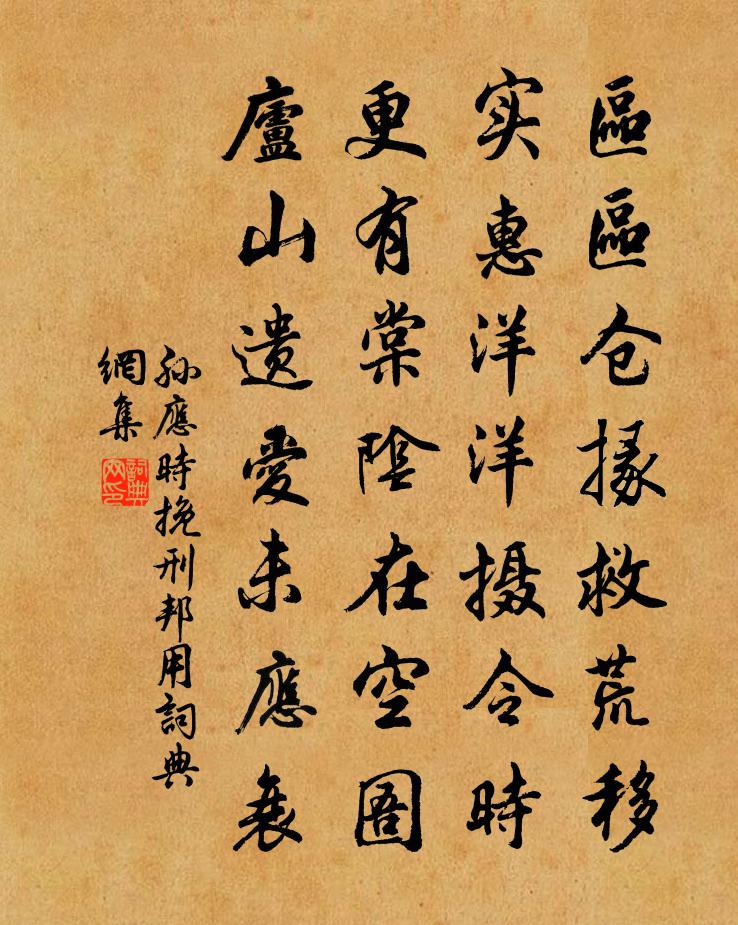 區區仓掾救荒移
实惠洋洋摄令时
更有棠陰在空圄
廬山遗愛未應衰
孙應時挽刑邦用詞典
網集
詞典網印